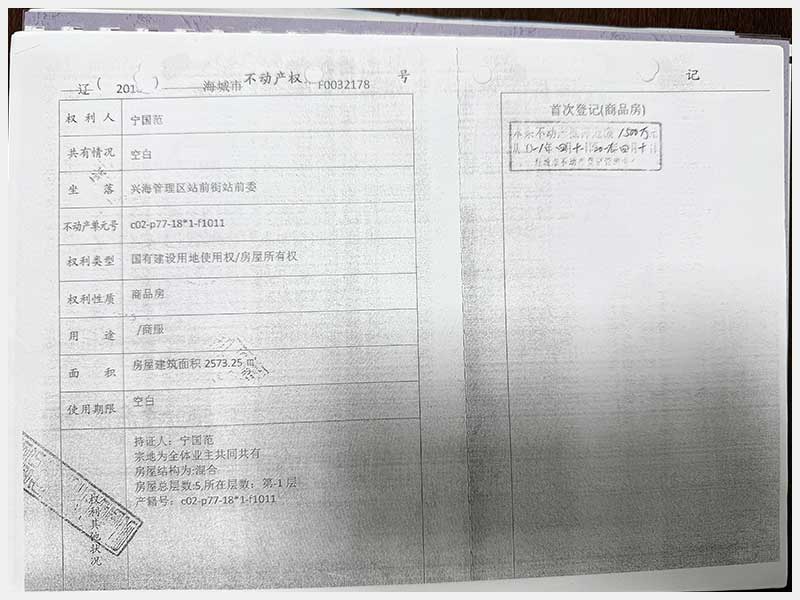 辽( 201 ) 海城市不动产权 F0032178 号
权利人 宁国范
共有情况 空白
坐落 兴海管理区站前街站前委
不动产单元号 c02-p77-18*1-f1011
权利类型 国有建设用地使用权/房屋所有权
权利性质 商品房
用途 /商服
面积 房屋建筑面积 2573.25 ㎡
使用期限 空白
权利其他状况
持证人：宁国范
宗地为全体业主共同共有
房屋结构为:混合
房屋总层数:5,所在层数：第-1 层
产籍号：c02-p77-18*1-f1011
记
首次登记(商品房)
不动产 1500万